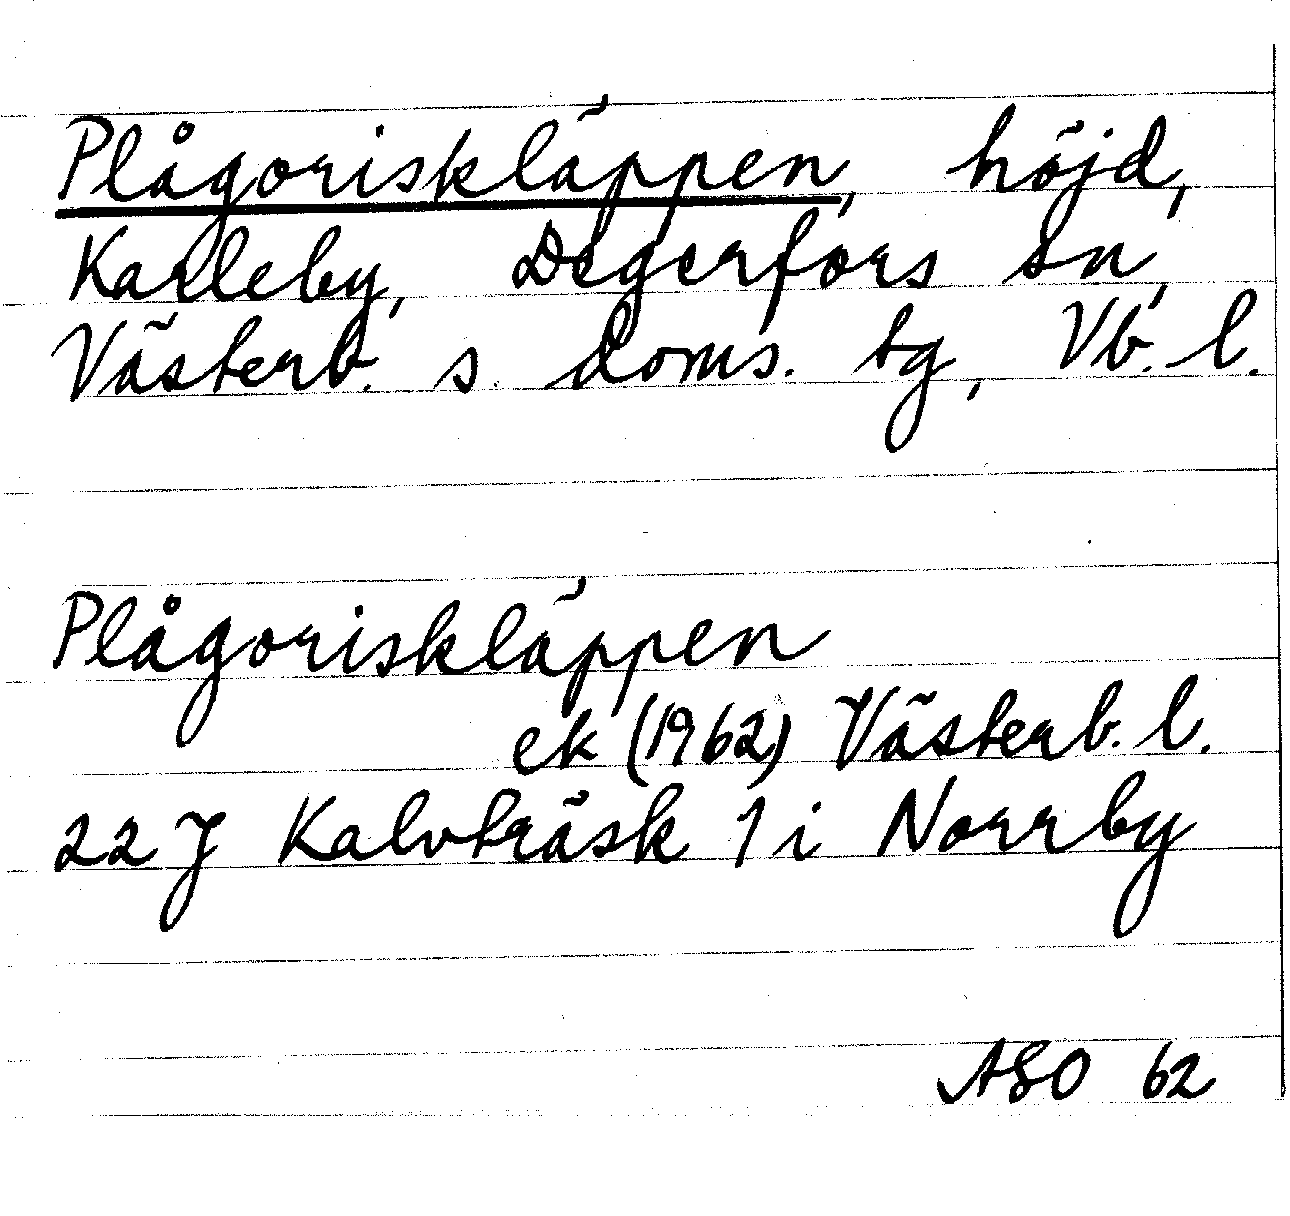 Plågoriskläppen, höjd,
Karleby, Degerfors sn,
Västerb. s. doms. tg, Vb. l.
Plågoriskläppen
ek (1962) Västerb. l.
22 J Kalvträsk 1 i Norrby
ASO 62